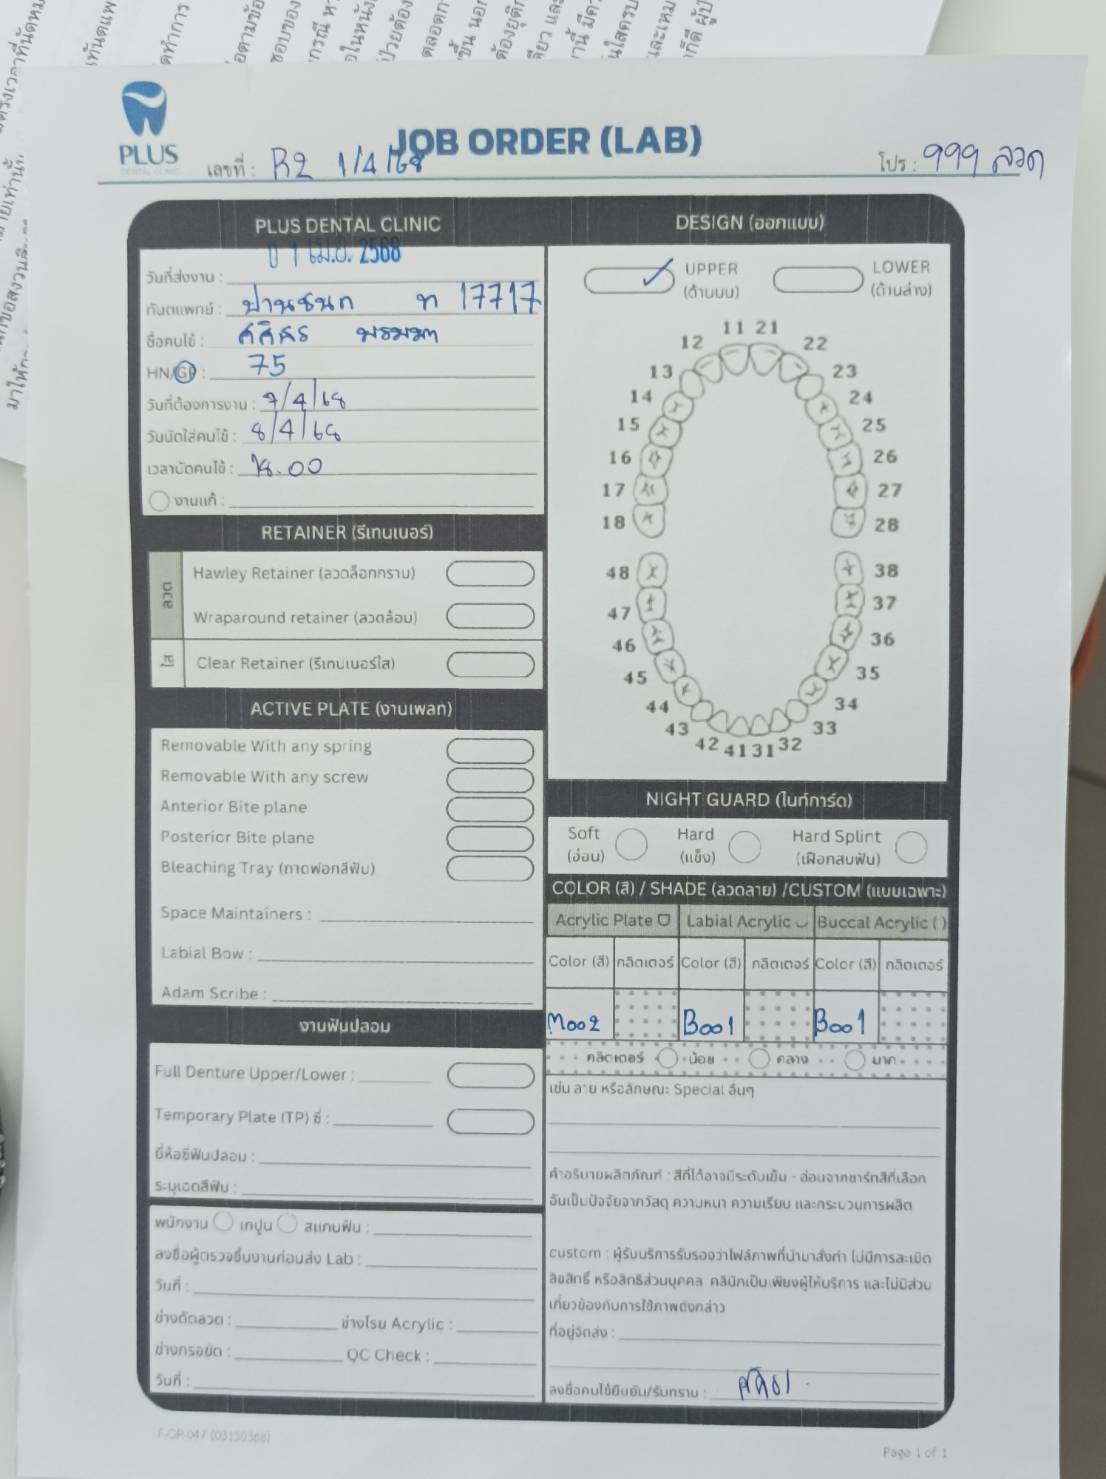 PLUS
DENTAL CLINIC
JOB ORDER (LAB)
เลขที่ : B2 1/4/68
โปร : 999 ลวด
PLUS DENTAL CLINIC
วันที่ส่งงาน : 0 1 เม.ย. 2568
ทันตแพทย์ : ปานชนก ท 17717
ชื่อคนไข้ :
HN/GP : 75
วันที่ต้องการงาน : 7/4/68
วันนัดใส่คนไข้ : 8/4/68
เวลานัดคนไข้ : 18.00
งานแก้ :
RETAINER (รีเทนเนอร์)
ลวด
Hawley Retainer (ลวดล็อกกราม)
Wraparound retainer (ลวดล้อม)
ใส
Clear Retainer (รีเทนเนอร์ใส)
ACTIVE PLATE (งานเพลท)
Removable With any spring
Removable With any screw
Anterior Bite plane
Posterior Bite plane
Bleaching Tray (ถาดฟอกสีฟัน)
Space Maintainers :
Labial Bow :
Adam Scribe :
งานฟันปลอม
Full Denture Upper/Lower :
Temporary Plate (TP) ซี่ :
ยี่ห้อซี่ฟันปลอม :
ระบุเฉดสีฟัน :
พนักงาน เทปูน สแกนฟัน :
ลงชื่อผู้ตรวจชิ้นงานก่อนส่ง Lab :
วันที่ :
ช่างดัดลวด : ช่างโรย Acrylic :
ช่างกรอขัด : QC Check :
วันที่ :
DESIGN (ออกแบบ)
UPPER
(ด้านบน)
LOWER
(ด้านล่าง)
11 21
12 22
13 23
14 24
15 25
16 26
17 27
18 28
48 38
47 37
46 36
45 35
44 34
43 33
42 41 31 32
NIGHT GUARD (ไนท์การ์ด)
Soft
(นิ่ม)
Hard
(แข็ง)
Hard Splint
(เฝือกสบฟัน)
COLOR (สี) / SHADE (ลวดลาย) /CUSTOM (แบบเฉพาะ)
Acrylic Plate Labial Acrylic Buccal Acrylic ( )
Color (สี) กลิตเตอร์ Color (สี) กลิตเตอร์ Color (สี) กลิตเตอร์
M002 B001 B001
กลิตเตอร์ น้อย กลาง มาก
เช่น ลาย หรือลักษณะ Special อื่นๆ
คำอธิบายผลิตภัณฑ์ : สีที่ได้อาจมีระดับเข้ม - อ่อนจากชาร์ทสีที่เลือก
อันเป็นปัจจัยจากวัสดุ ความหนา ความเรียบ และกระบวนการผลิต
custom : ผู้รับบริการรับรองว่าไฟล์ภาพที่นำมาสั่งทำ ไม่มีการละเมิด
ลิขสิทธิ์ หรือสิทธิส่วนบุคคล คลินิกเป็นเพียงผู้ให้บริการ และไม่มีส่วน
เกี่ยวข้องกับการใช้ภาพดังกล่าว
ที่อยู่จัดส่ง :
ลงชื่อคนไข้ยืนยัน/รับทราบ :
F-OP-047 (03130368)
Page 1 of 1